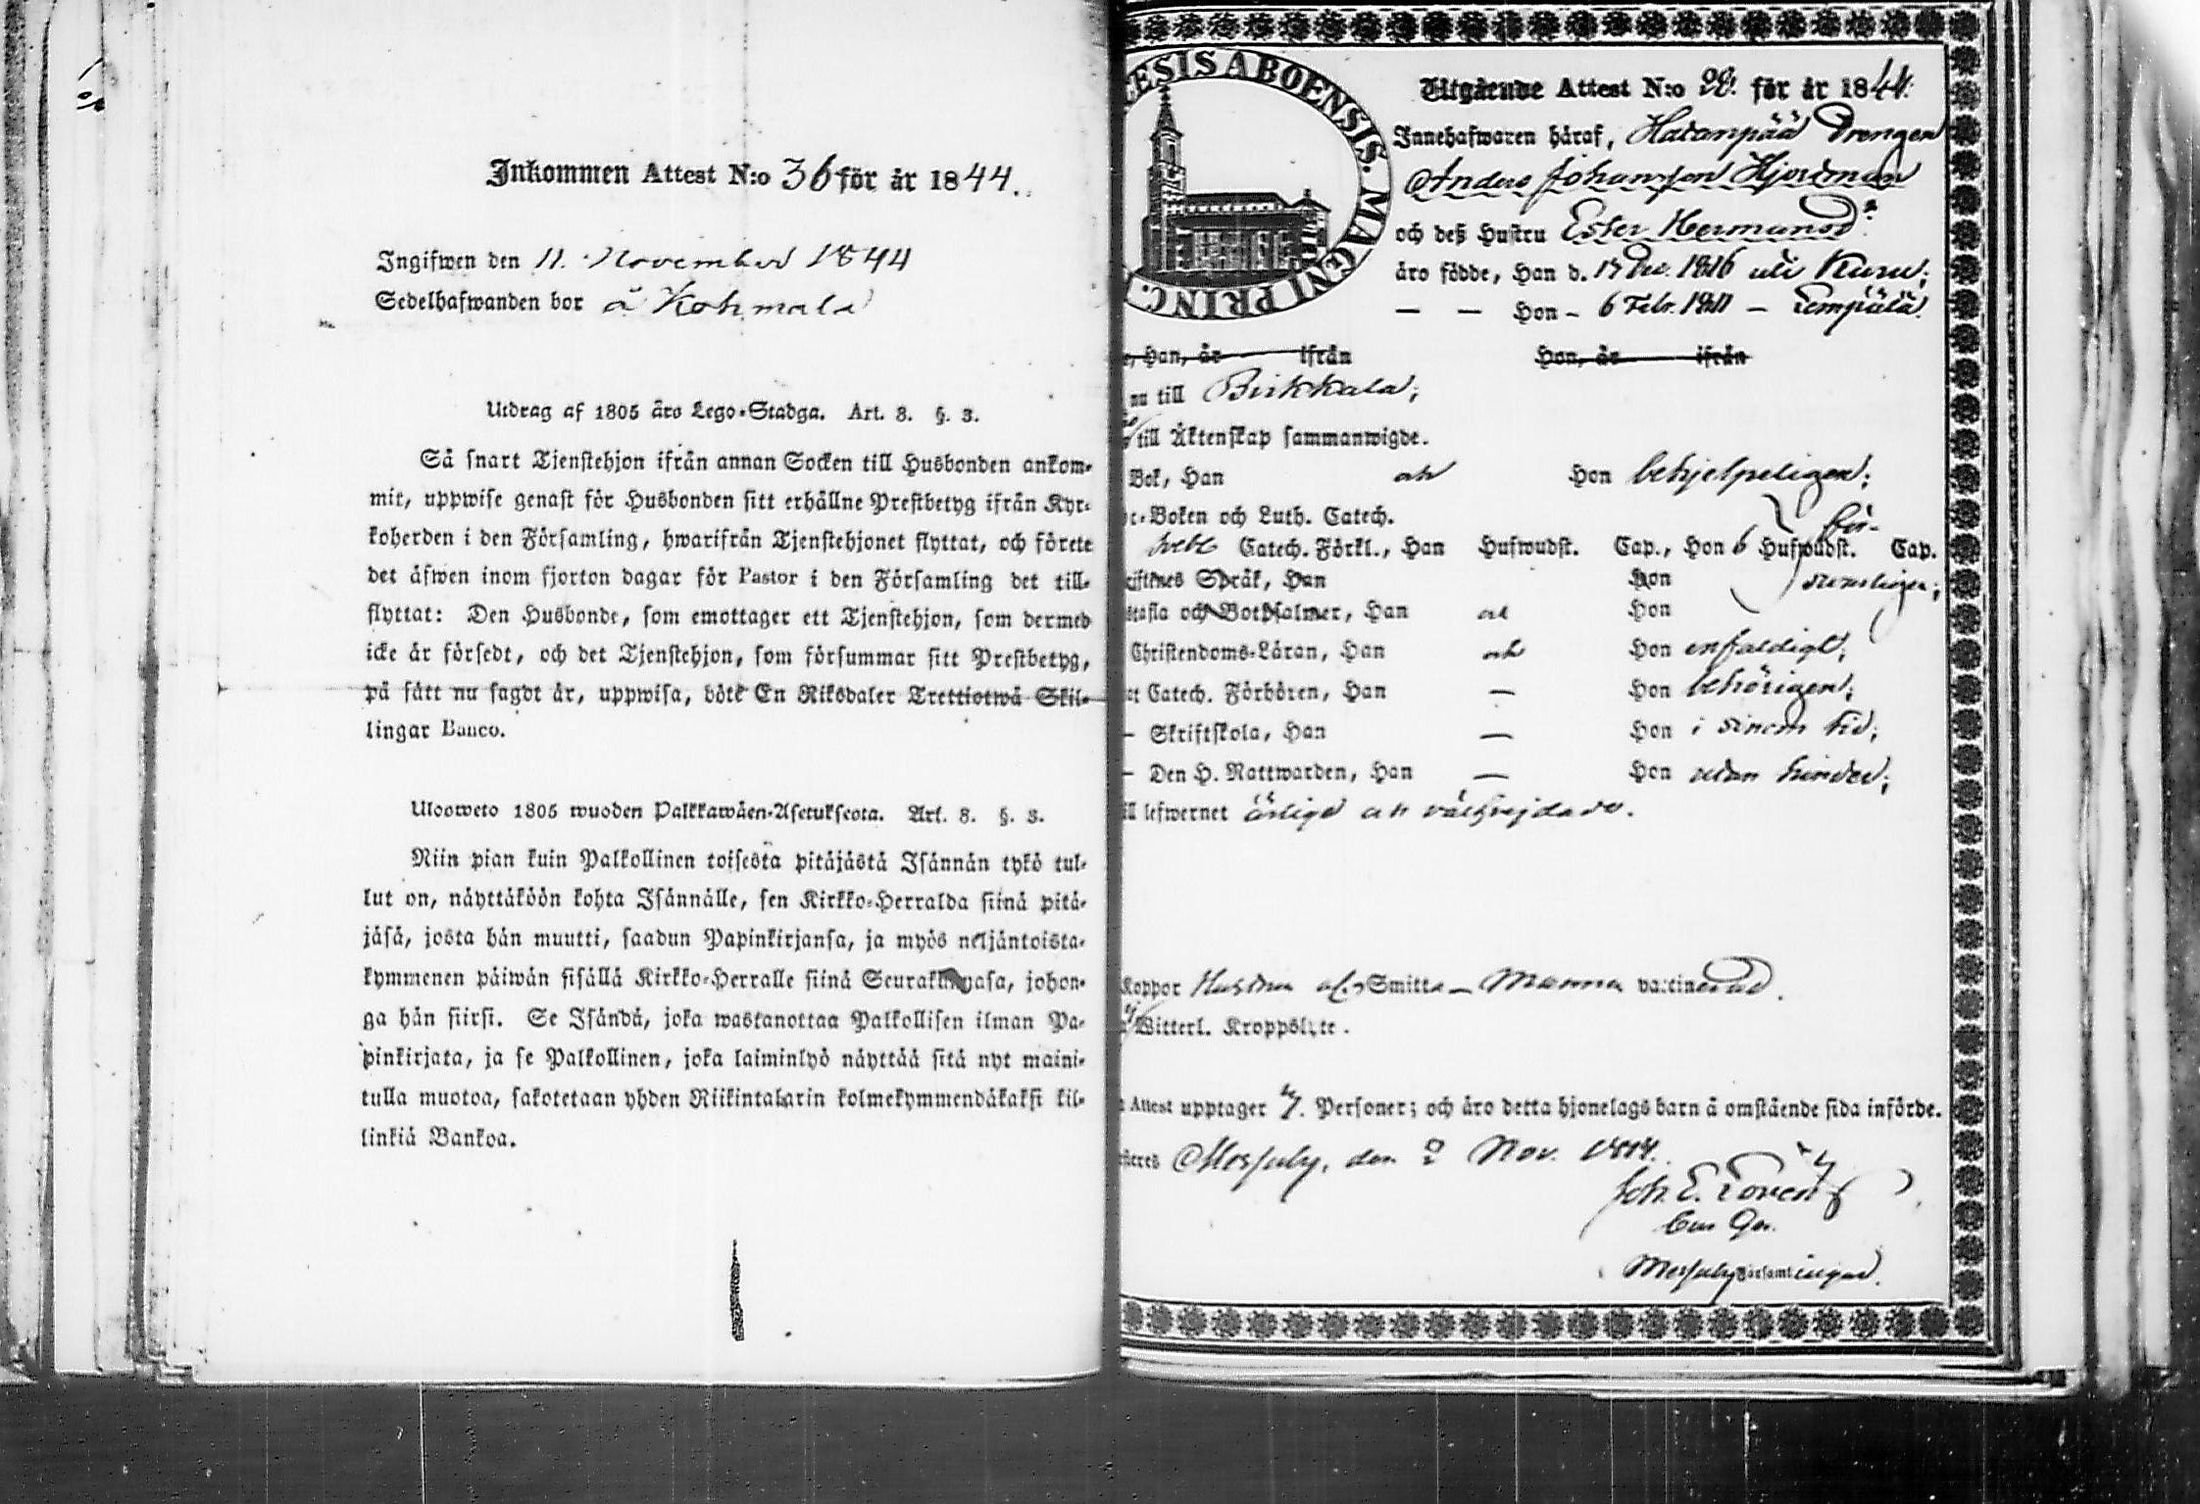 Inkommen Attest N:o 36 för år 1844.
Ingifwen den 11. November 1844
Sedelhafwanden bor å Kohmala
Utdrag af 1805 års Lego-Stadga. Art. 8. §. 3.
Så snart Tjenstehjon ifrån annan Socken till Husbonden ankom-
mit, uppwise genast för Husbonden sitt erhållne Prestbetyg ifrån Kyr-
koherden i den Församling, hwarifrån Tjenstehjonet flyttat, och förete
det äfwen inom fjorton dagar för Pastor i den Församling det till-
flyttat: Den Husbonde, som emottager ett Tjenstehjon, som dermed
icke är försedt, och det Tjenstehjon, som försummar sitt Prestbetyg,
på sätt nu sagdt är, uppwisa, böte En Riksdaler Trettiotwå Skil-
lingar Banco.
Ulosweto 1805 wuoden Palkkawäen-Asetuksesta. Art. 8. §. 3.
Niin pian kuin Palkollinen toisesta pitäjästä Isännän tykö tul-
lut on, näyttäköön kohta Isännälle, sen Kirkko-Herralda siinä pitä-
jäsä, josta hän muutti, saadun Papinkirjansa, ja myös neljäntoista-
kymmenen päiwän sisällä Kirkko-Herralle siinä Seurakunnasa, johon-
ga hän siirsi. Se Isändä, joka wastanottaa Palkollisen ilman Pa-
pinkirjata, ja se Palkollinen, joka laiminlyö näyttää sitä nyt maini-
tulla muotoa, sakotetaan yhden Riikintalarin kolmekymmendäkaksi kil-
linkiä Bankoa.
ESIS ABOENSIS. MAGNI PRINC.
Utgående Attest N:o för år 1844.
Innehafwaren häraf, Hatanpää Drengen
Anders Johansson Hjordman
och deß Hustru Ester Hermansd:r
äro födde, Han d. Dec. 1816 uti Kuru;
— — Hon - 6 Febr. 1811 — Lempälä.
, Han, år ifrån Hon, år ifrån
nu till Birkkala;
till Äktenskap sammanwigde.
Bok, Han och Hon behjelpeligen;
-Boken och Luth. Catech.
Catech. Förkl., Han Hufwudst. Cap., Hon 6 Hufwudst. Cap.
Språk, Han Hon
och Botpsalmer, Han och Hon
Christendoms-Läran, Han och Hon enfaldigt;
Catech. Förhören, Han — Hon behörigen;
— Skriftskola, Han — Hon i sinom tid;
— Den H. Nattwarden, Han — Hon utan hinder;
till lefwernet ärlige och välfrejdade.
Koppor Hustrun af Smitta - Mannen vaccinerad.
Witterl. Kroppslyte.
Attest upptager 4. Personer; och äro detta hjonelags barn å omstående sida införde.
Messuby, den 2 Nov. 1844.
Joh. E. Lovén
Messuby Församlingar.